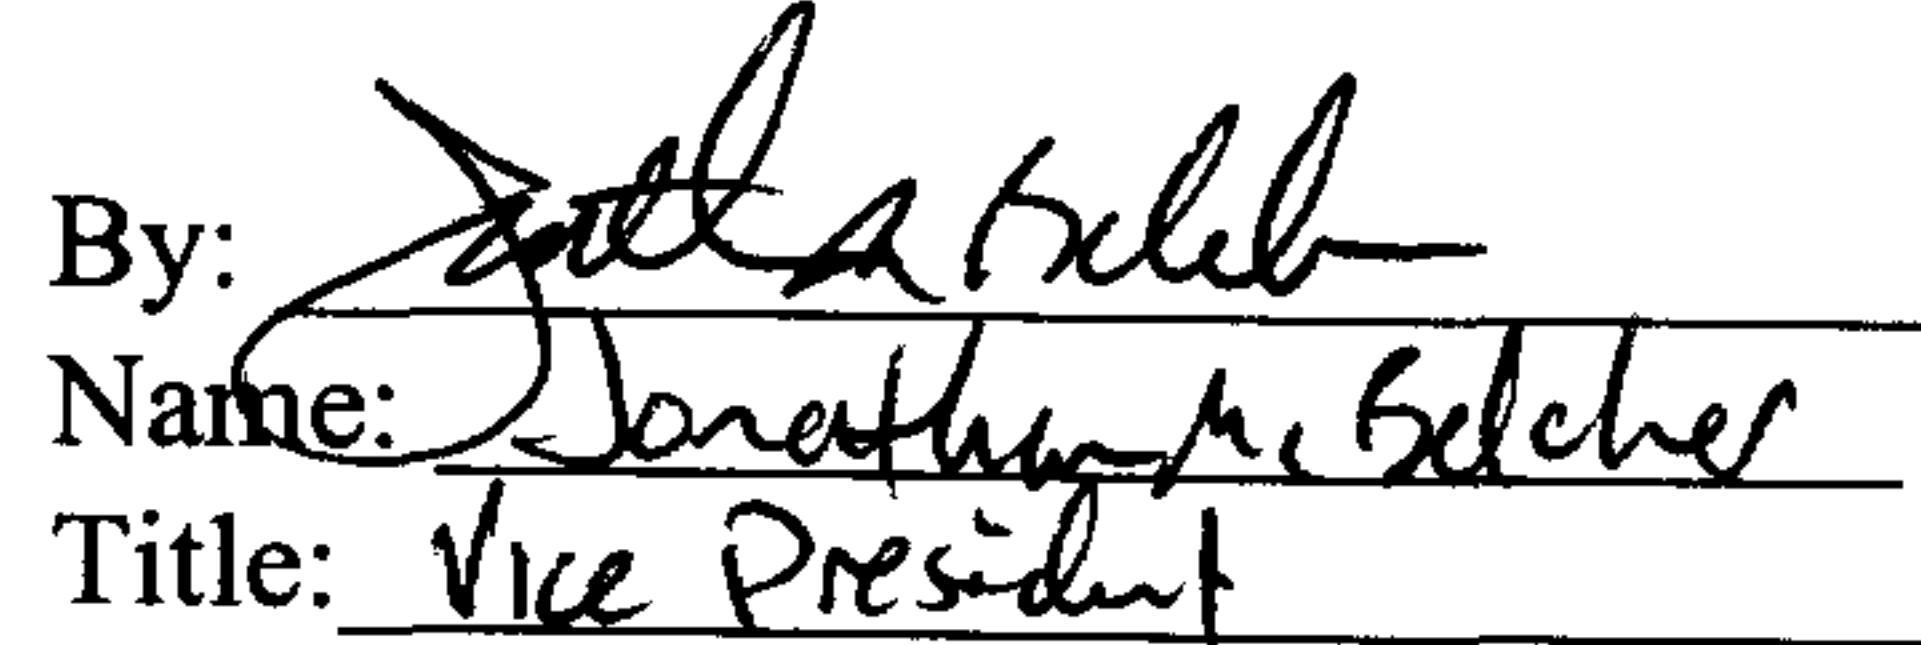 By:
Name: Jonathan M. Belcher
Title: Vice President